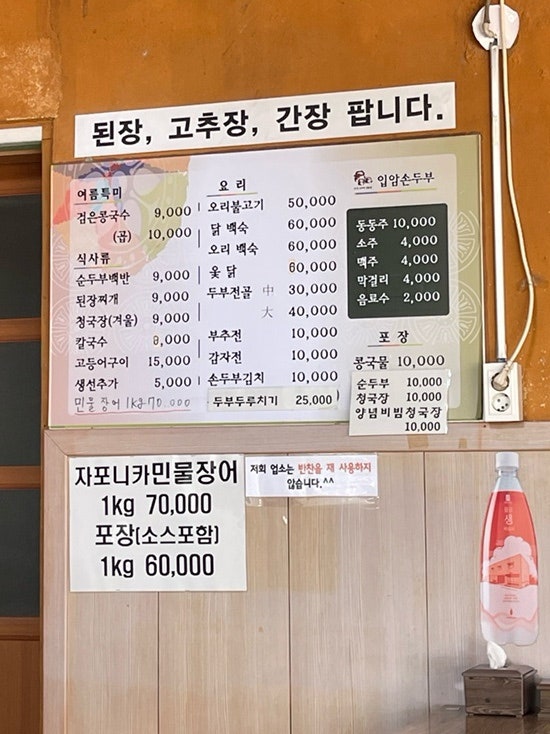 된장, 고추장, 간장 팝니다.
여름특미
검은콩국수 9,000
(곱) 10,000
식사류
순두부백반 9,000
된장찌개 9,000
청국장(겨울) 9,000
칼국수 8,000
고등어구이 15,000
생선추가 5,000
민물장어 1kg 70.000
요리
오리불고기 50,000
닭 백숙 60,000
오리 백숙 60,000
옻 닭 60,000
두부전골 中 30,000
大 40,000
부추전 10,000
감자전 10,000
손두부김치 10,000
두부두루치기 25,000
입암손두부
동동주 10,000
소주 4,000
맥주 4,000
막걸리 4,000
음료수 2,000
포장
콩국물 10,000
순두부 10,000
청국장 10,000
양념비빔청국장
10,000
자포니카민물장어
1kg 70,000
포장(소스포함)
1kg 60,000
저희 업소는 반찬을 재 사용하지
않습니다.^^
생